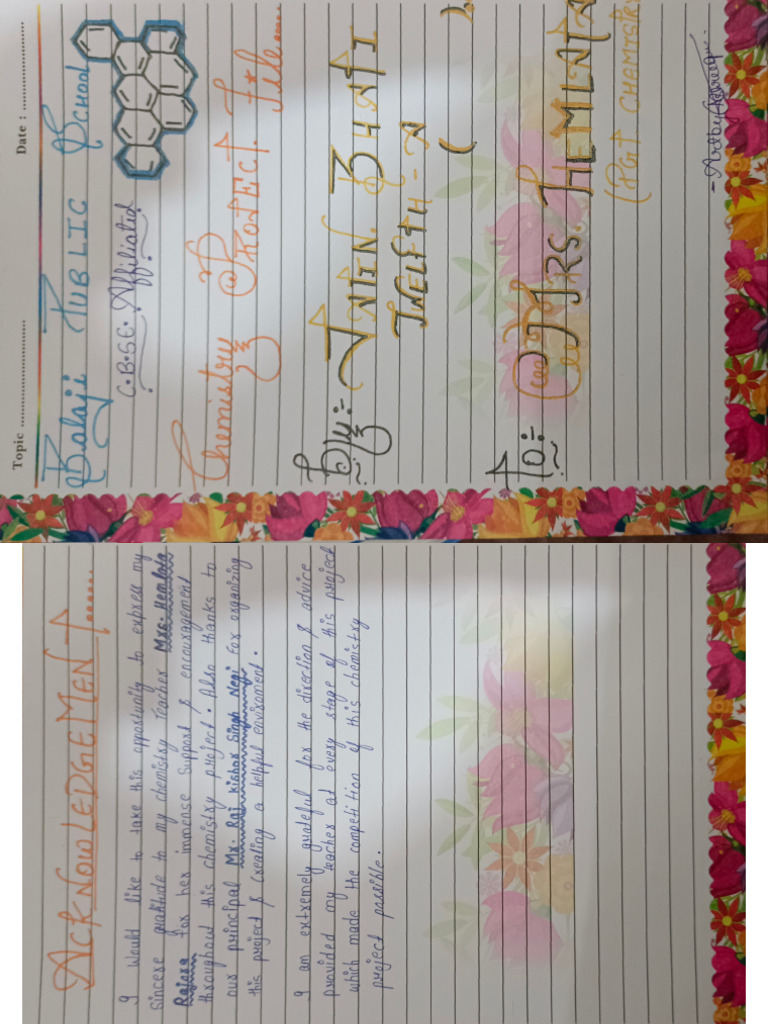 Topic ........................ Date : ........................
Balaji Public School
C.B.S.E. Affiliated
Chemistry Project File.....
By:-
Twelfth - A
( )
To:- Mrs. Hemlata
(PGT Chemistry
Acknowledgement......
I Would like to take this opportunity to express my
sincere gratitude to my chemistry teacher Mrs. Hemlata
Rajora for her immense support & encouragement
throughout this chemistry project. Also thanks to
our principal Mr. Raj Kishor Singh Negi for organizing
this project & creating a helpful enviroment.
I am extremely grateful for the direction & advice
provided my teacher at every stage of this project
which made the competition of this chemistry
project possible.